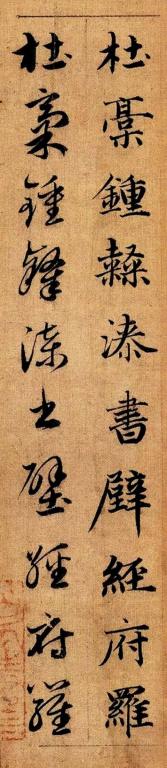 杜稾鍾隸漆書壁經府羅
杜稾鍾隸漆書壁經府羅